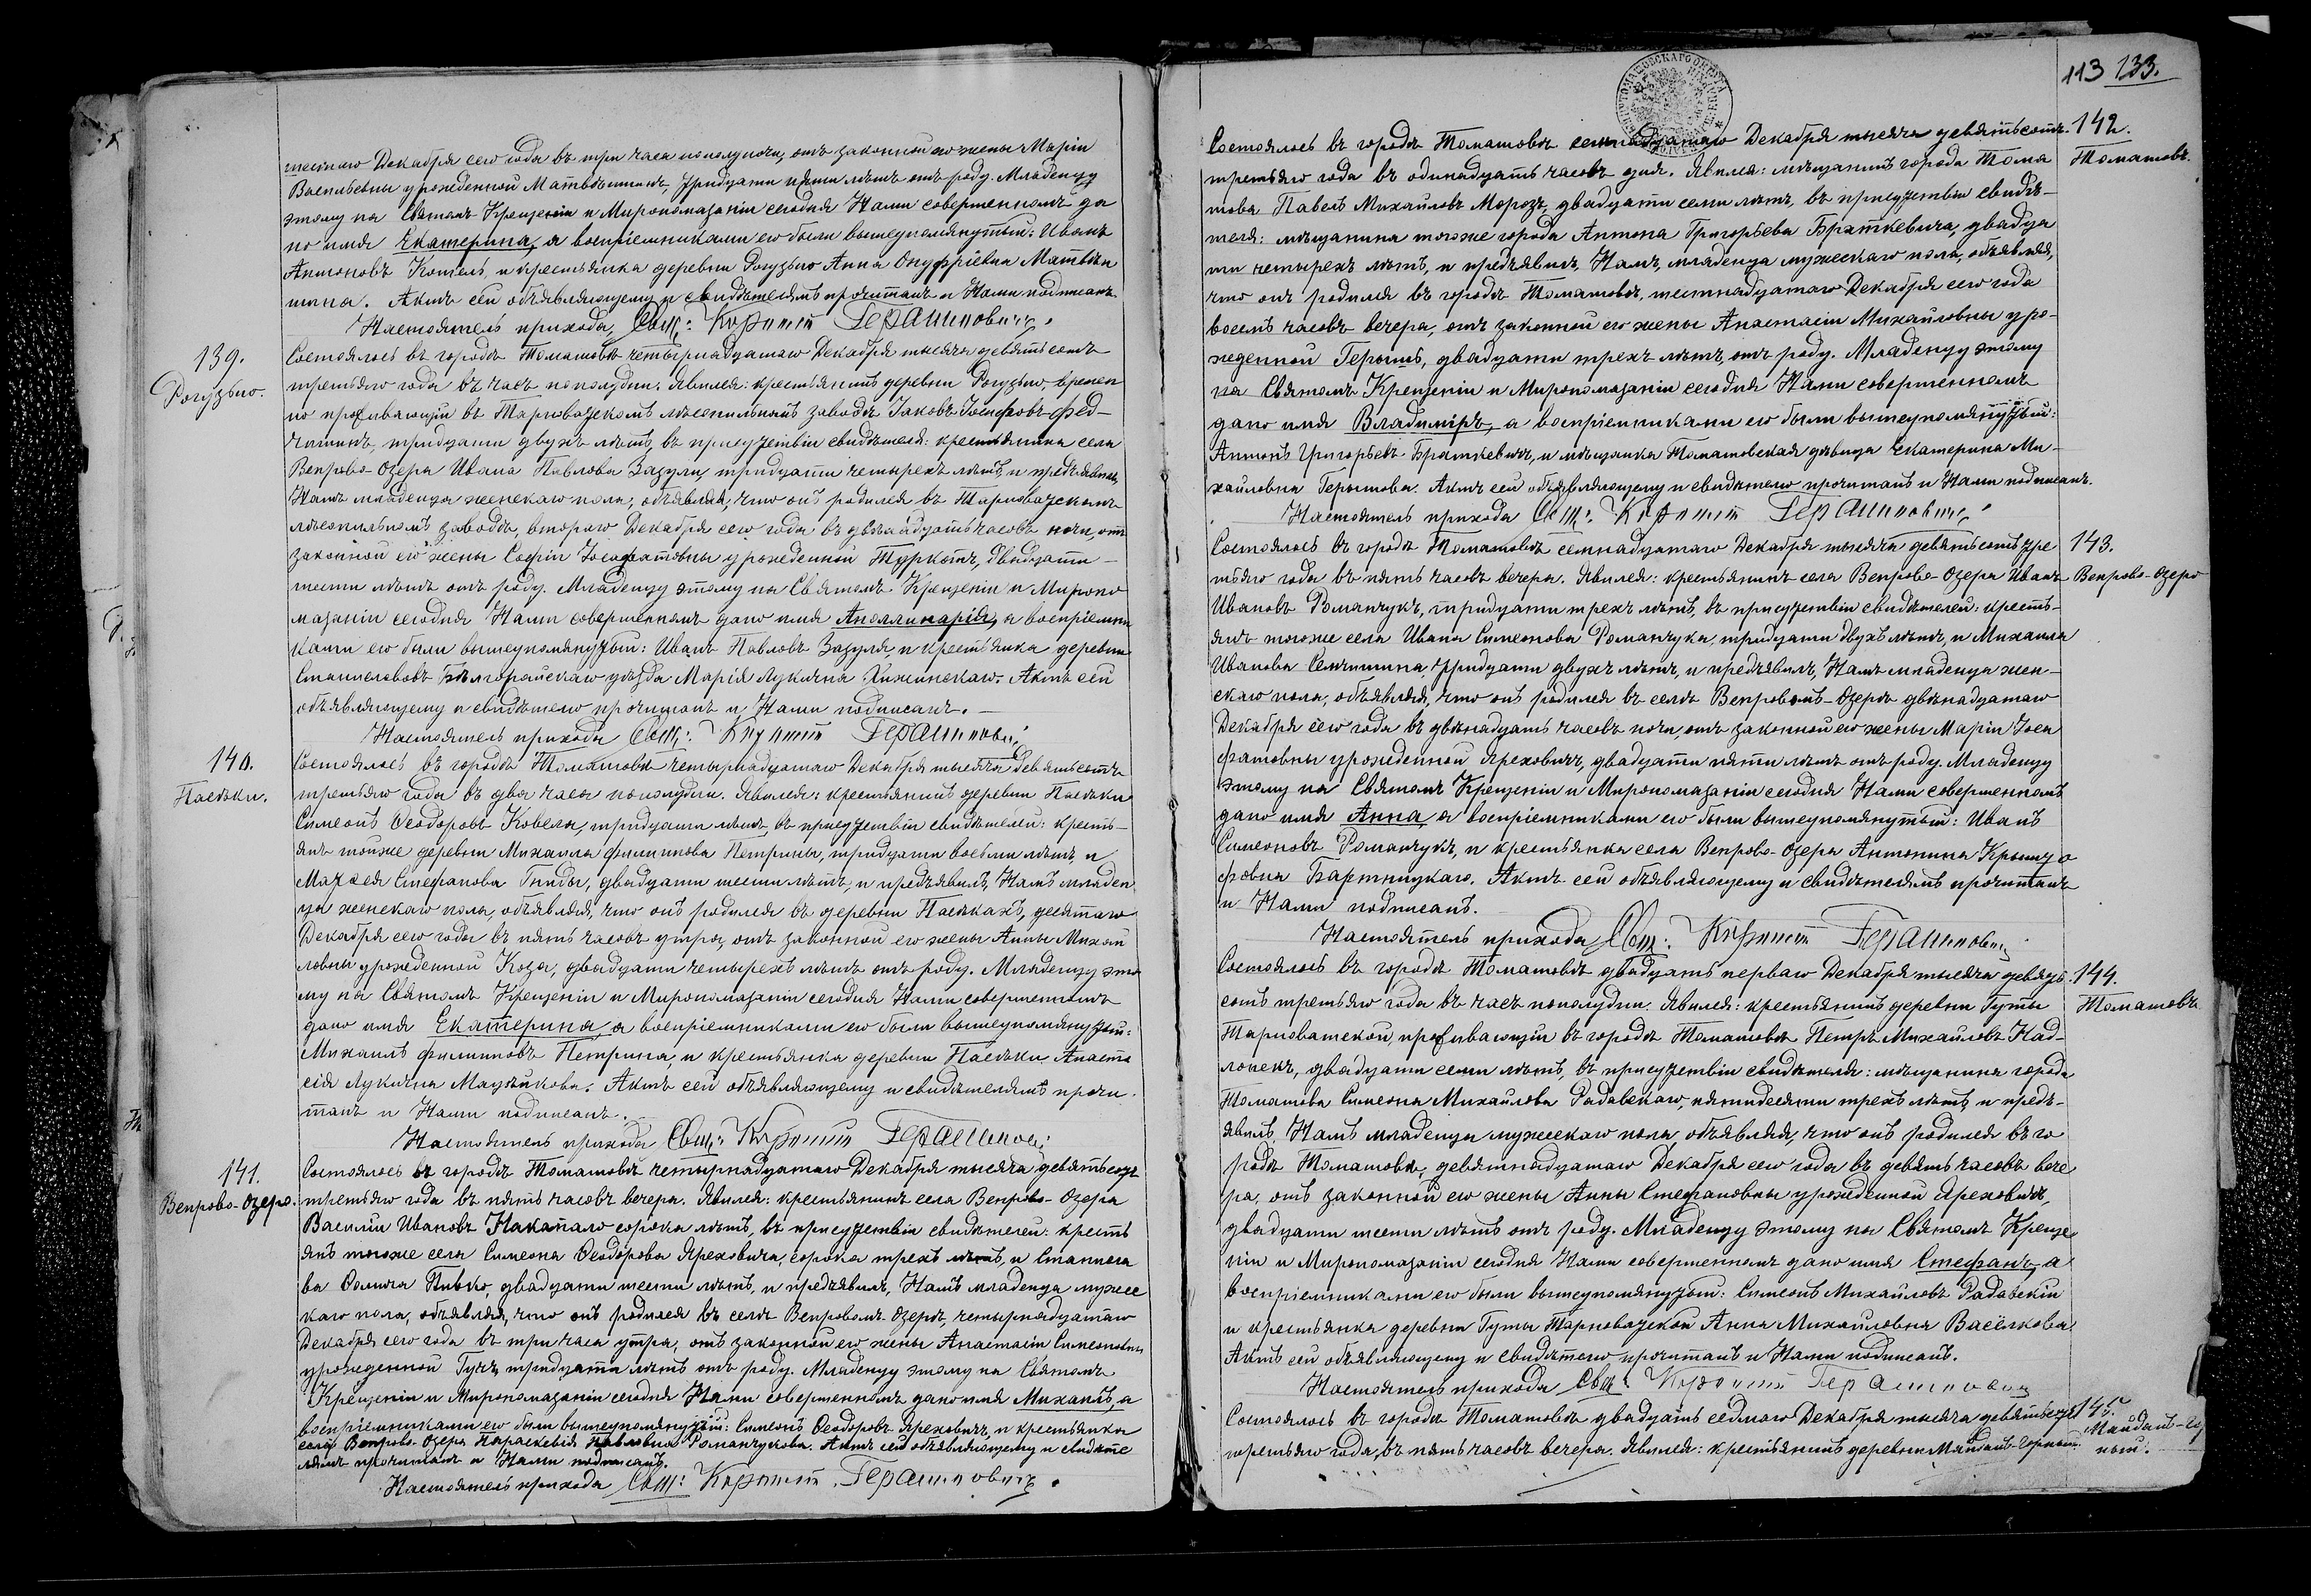 шестаго Декабря сего года въ три часа пополуночи, отъ законной его жены Маріи
Васильевны урожденной Матвѣишинъ, тридцати пяти лѣтъ отъ роду. Младенцу
этому на Святомъ Крещеніи и Миропомазаніи сегодня Нами совершенномъ да
но имя Екатерина, а воспріемниками его были вышеупомянутый: Иванъ
Антоновъ Котелъ, и крестьянка деревни Рогузьно Анна Онуфріевна Матвѣи
шина. Актъ сей объявляющему и свидѣтелямъ прочитанъ и Нами подписанъ.
Настоятель прихода, Свящ: Герашиновичъ.
139.
Рогузьно.
Состоялось въ городѣ Томашовѣ четырнадцатаго Декабря тысяча девятьсотъ
третьяго года въ часъ пополудни. Явился: крестьянинъ деревни Рогузьно, времен
но проживающій въ Тарноватскомъ лѣсопильномъ заводѣ Іаковъ Іосифовъ Фед-
чишинъ, тридцати двухъ лѣтъ, въ присутствіи свидѣтеля: крестьянина села
Вепрово-Озера Ивана Павлова Зазули, тридцати четырехъ лѣтъ, и предъявилъ
Намъ младенца женскаго пола, объявляя, что онъ родился въ Тарноватскомъ
лѣсопильномъ заводѣ, второго Декабря сего года въ двѣнадцать часовъ ночи, отъ
законной его жены Софіи Іосафатовны урожденной Туркотъ, двадцати
шести лѣтъ отъ роду. Младенцу этому на Святомъ Крещеніи и Миропо
мазаніи сегодня Нами совершенномъ дано имя Аполлинарія, а воспріемни
ками его были вышеупомянутый: Иванъ Павловъ Зазуля, и крестьянка деревни
Станиславовъ Бѣлгорайскаго уѣзда Марія Лукична. Актъ сей
объявляющему и свидѣтелю прочитанъ и Нами подписанъ.
Настоятель прихода Свящ: Герашинович
140.
Пасѣки.
Состоялось въ городѣ Томашовѣ четырнадцатаго Декабря тысяча девятьсотъ
третьяго года въ два часа пополудни. Явился: крестьянинъ деревни Пасѣки
Симеонъ Ѳеодоровъ Ковела, тридцати лѣтъ, въ присутствіи свидѣтелей: кресть-
янъ тойже деревни Михаила Филипова Петрины, тридцати восьми лѣтъ, и
Матѳея Стефанова Гниды, двадцати шести лѣтъ, и предъявилъ, Намъ младен
ца женскаго пола, объявляя, что онъ родился въ деревни Пасѣкахъ, десятаго
Декабря сего года въ пять часовъ утра, отъ законной его жены Анны Михаи
ловны урожденной Коза, двадцати четырехъ лѣтъ отъ роду. Младенцу это
му на Святомъ Крещеніи и Миропомазаніи сегодня Нами совершенномъ
дано имя Екатерина, а воспріемниками его были вышеупомянутый:
Михаилъ Филиповъ Петрина, и крестьянка деревни Пасѣки Анаста
сія Лукична Мацѣикова. Актъ сей объявляющему и свидѣтелямъ прочи
танъ и Нами подписанъ.
Настоятель прихода Свящ: Герашинович
141.
Вепрово-Озеро.
Состоялось въ городѣ Томашовѣ четырнадцатаго Декабря тысяча девятьсотъ
третьяго года въ пять часовъ вечера. Явился: крестьянинъ села Вепрово-Озера
Василій Ивановъ Накапаго сорока лѣтъ, въ присутствіи свидѣтелей: кресть
янъ тогоже села Симеона Ѳеодорова Яреховича, сорока трехъ лѣтъ, и Станисла
ва Пивко, двадцати шести лѣтъ, и предъявилъ, Намъ младенца мужес
каго пола, объявляя, что онъ родился въ селѣ Вепровомъ-Озерѣ, четырнадцатаго
Декабря сего года въ три часа утра, отъ законной его жены Анастасіи Симеоновны
урожденной Гуцъ, тридцати лѣтъ отъ роду. Младенцу этому на Святомъ
Крещеніи и Миропомазаніи сегодня Нами совершенномъ дано имя Михаилъ, а
воспріемниками его были вышеупомянутый: Симеонъ Ѳеодоровъ Яреховичъ, и крестьянка
села Вепрово-Озера Параскевія Павловна Романчукова. Актъ сей объявляющему и свидѣте
лямъ прочитанъ и Нами подписанъ.
Настоятель прихода Свящ: Герашиновичъ.
113 133.
Состоялось въ городѣ Томашовѣ семнадцатаго Декабря тысяча девятьсотъ
третьяго года въ одинадцать часовъ дня. Явился: мѣщанинъ города Тома
шова Павелъ Михаиловъ Морозъ, двадцати семи лѣтъ, въ присутствіи свидѣ-
теля: мѣщанина тогоже города Антона Григорьева Браткевича, двадца
ти четырехъ лѣтъ, и предъявилъ, Намъ, младенца мужескаго пола, объявляя,
что онъ родился въ городѣ Томашовѣ, шестнадцатаго Декабря сего года
восемь часовъ вечера, отъ законной его жены Анастасіи Михаиловны уро-
жденной Герышъ, двадцати трехъ лѣтъ, отъ роду. Младенцу этому
на Святомъ Крещеніи и Миропомазаніи сегодня Нами совершенномъ
дано имя Владиміръ, а воспріемниками его были вышеупомянутый:
Антонъ Григорьевъ Браткевичъ, и мѣщанка Томашовская дѣвица Екатерина Ми-
хаиловна Герышова. Актъ сей объявляющему и свидѣтелю прочитанъ и Нами подписанъ.
Настоятель прихода Свящ: Герашинович
142.
Томашовъ.
Состоялось въ городѣ Томашовѣ семнадцатаго Декабря тысяча девятьсотъ тре
тьяго года въ пять часовъ вечера. Явился: крестьянинъ села Вепрово-Озера Иванъ
Ивановъ Романчукъ, тридцати трехъ лѣтъ, въ присутствіи свидѣтелей: кресть-
янъ тогоже села Ивана Симеонова Романчука, тридцати двухъ лѣтъ, и Михаила
Иванова Сенчишина, тридцати двухъ лѣтъ, и предъявилъ, Намъ младенца жен-
скаго пола, объявляя, что онъ родился въ селѣ Вепровомъ-Озерѣ двѣнадцатаго
Декабря сего года въ двѣнадцать часовъ ночи, отъ законной его жены Маріи Іоса
фатовны урожденной Яреховичъ, двадцати пяти лѣтъ отъ роду. Младенцу
этому на Святомъ Крещеніи и Миропомазаніи сегодня Нами совершенномъ
дано имя Анна, а воспріемниками его были вышеупомянутый: Иванъ
Симеоновъ Романчукъ, и крестьянка села Вепрово-Озера Антонина Крышто
фовна Бартницкаго. Актъ сей объявляющему и свидѣтелямъ прочитанъ
и Нами подписанъ.
Настоятель прихода Свящ: Герашинович
143.
Вепрово-Озеро
Состоялось въ городѣ Томашовѣ двадцать перваго Декабря тысяча девять-
сотъ третьяго года въ часъ пополудни. Явился: крестьянинъ деревни Гуты
Тарноватской, проживающій въ городѣ Томашовѣ Петръ Михаиловъ Кад-
лонекъ, двадцати семи лѣтъ, въ присутствіи свидѣтеля: мѣщанина города
Томашова Симеона Михаилова Радавскаго, пятидесяти трехъ лѣтъ, и предъ-
явилъ, Намъ младенца мужескаго пола, объявляя, что онъ родился въ го
родѣ Томашовѣ, девятнадцатаго Декабря сего года въ девять часовъ вече
ра, отъ законной его жены Анны Стефановны урожденной Яреховичъ,
двадцати шести лѣтъ отъ роду. Младенцу этому на Святомъ Креще
ніи и Миропомазаніи сегодня Нами совершенномъ дано имя Стефанъ, а
воспріемниками его были вышеупомянутый: Симеонъ Михаиловъ Радавскій
и крестьянка деревни Гуты Тарноватской Анна Михаиловна Васёлкова
Актъ сей объявляющему и свидѣтелю прочитанъ и Нами подписанъ.
Настоятель прихода Свящ: Герашинович
144.
Томашовъ
Состоялось въ городѣ Томашовѣ двадцать седмаго Декабря тысяча девятьсотъ
третьяго года, въ пять часовъ вечера. Явился: крестьянинъ деревни Майданъ-Горный
145.
Майданъ-Гор
ный.